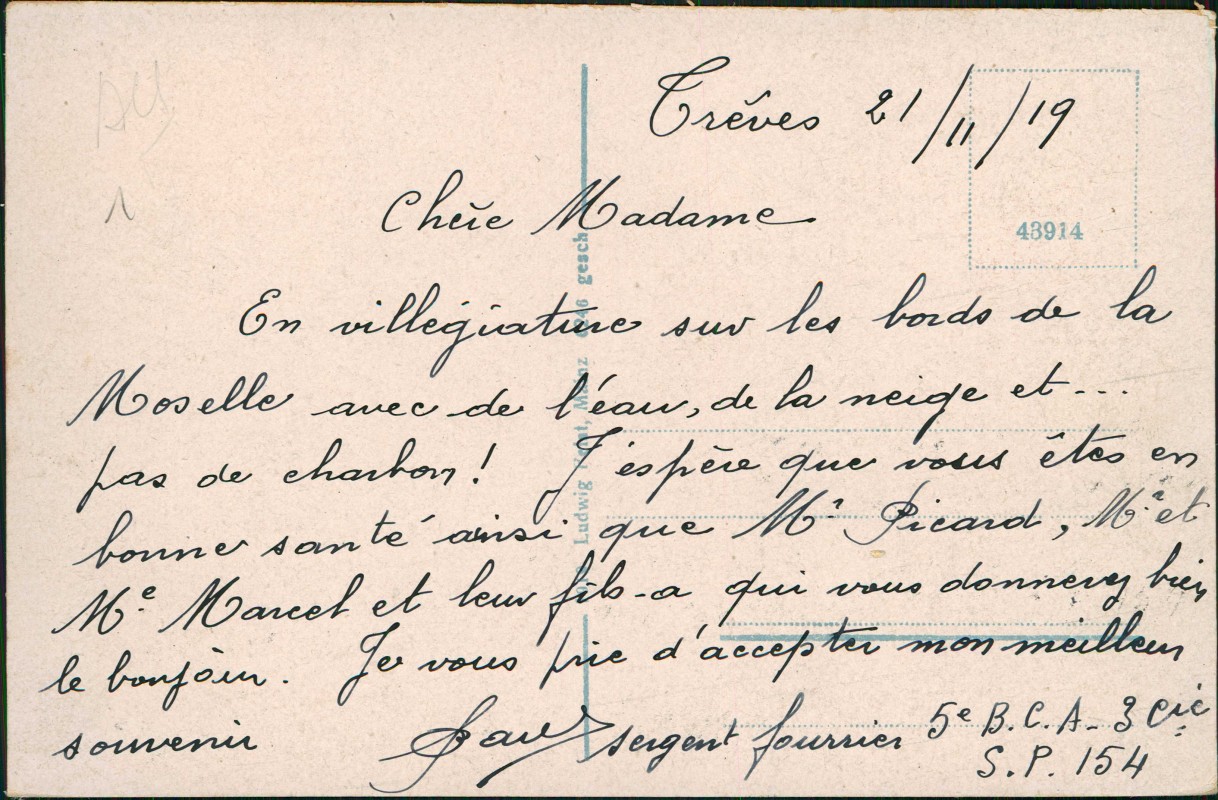 Trêves 21/11/19
43914
Chère Madame
En villégiature sur les bords de la
Moselle avec de l'éau, de la neige et ...
pas de charbon! J'espère que vous êtes en
bonne santé ainsi que Mr Picard, Mr et
Me Marcel et leur fils - a qui vous donnerez bien
le bonjour. Je vous prie d'accepter mon meilleur
souvenir
sergent fourrier 5e B.C.A - 3 Cie
S.P. 154
Ludwig Mainz 6246 gesch